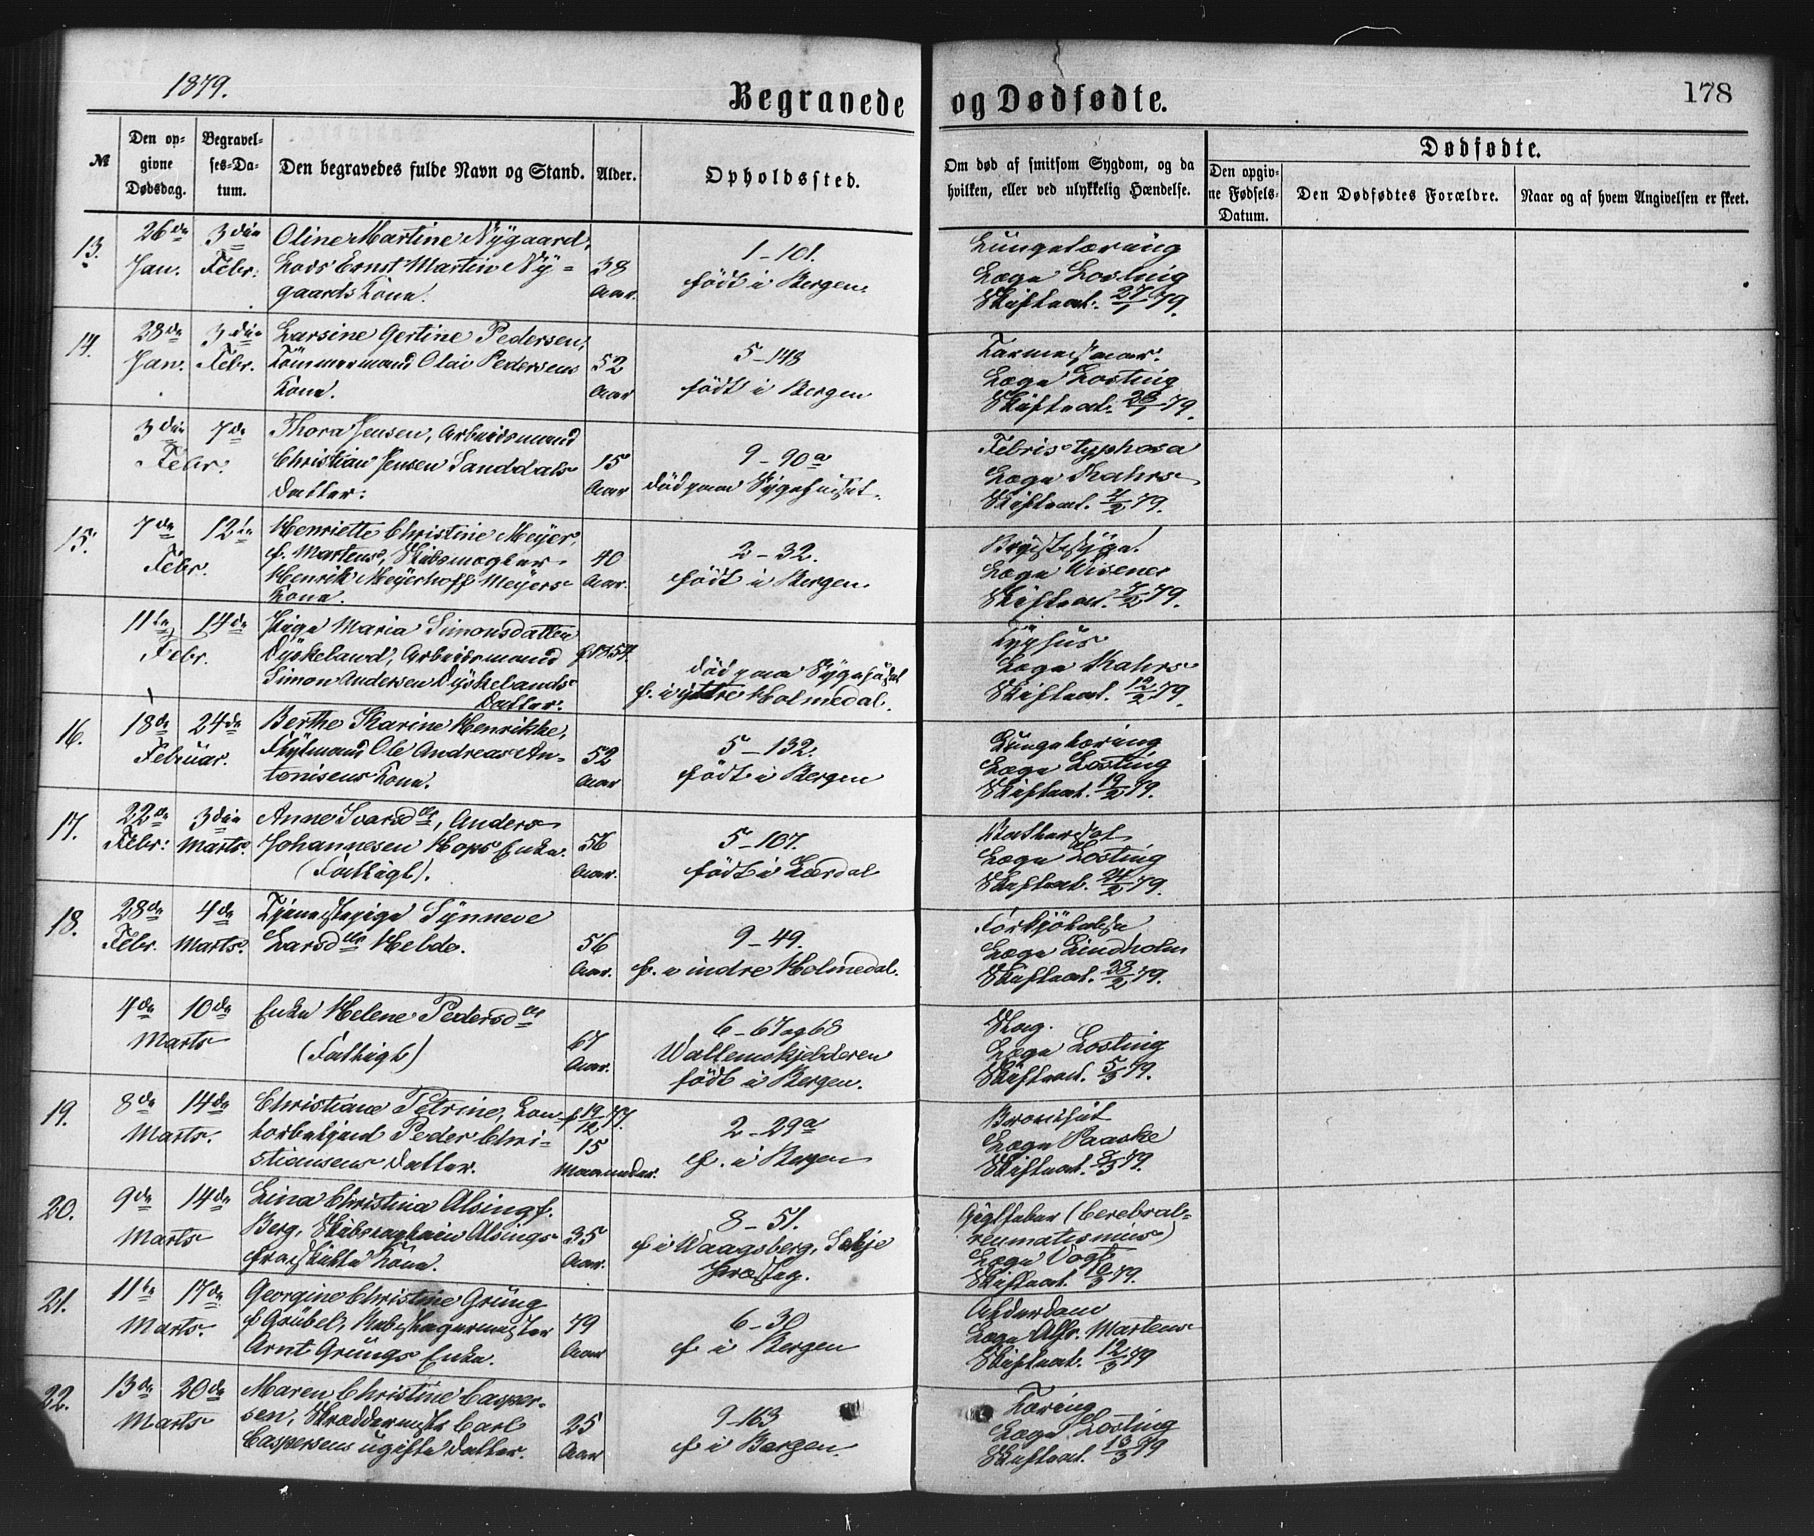 1879.
Begravede og Dødfødte.
178
№
Den opgivne Dødsdag.
Begravelses-Datum.
Den begravedes fulde Navn og Stand.
Alder.
Opholdssted.
Om død af smitsom Sygdom, og da hvilken, eller ved ulykkelig Hændelse.
Dødfødte.
Den opgivne Fødsels-Datum.
Den Dødfødtes Forældre.
Naar og af hvem Angivelsen er skeet.
13.
26de Jan.
3die Febr.
Oline Martine Nygaard,
Lods Ernst Martin Ny-
gaards Kone.
38 Aar.
1-101.
født i Bergen.
Lungetæring
Læge Losting
Skifteat. 27/1 79.
14.
28de Jan.
3die Febr.
Larsine Gertine Pedersen,
Tømmermand Olai Pedersens
Kone.
52 Aar
5-148
født i Bergen
Læge Losting
Skifteat. 28/1 79.
3die 7de
Febr.
Thora Jensen, Arbeidsmand
Christian Jensen Sanddals
Datter.
15 Aar
9-90a
død paa Sygehuset.
Febris typhosa
Læge Kahrs
Skifteat. 4/2 79.
15.
7de 12te
Febr.
Henriette Christine Meyer,
f. Martens, Skibsmægler
Henrik Meyerhoff Meyers
Kone.
40 Aar.
2-32.
født i Bergen.
Brystsyge.
Læge Wisener
Skifteat. 7/2 79.
11te 14de
Febr.
Pige Maria Simonsdatter
Dyskeland, Arbeidsmand
Simon Andersen Dyskelands
Datter.
f. 1857.
død paa Sygehuset
f. i ytre Holmedal.
Typhus
Læge Kahrs
Skifteat. 12/2 79.
16.
18de 24de
Februar.
Berthe Karine Henrikke,
Flytmand Ole Andreas An-
tonisens Kone.
52 Aar
5-132.
født i Bergen
Lungetæring
Læge Losting
Skifteat. 19/2 79.
17.
22de Febr.
3die Marts.
Anne Ivarsdtr, Anders
Johannesen Hops Enke.
(Fattigt).
56 Aar.
5-107.
født i Lærdal
Læge Losting
Skifteat. 24/2 79.
18.
28de Febr.
4de Marts.
Tjenestepige Synneve
Larsdtr Helde.
56 Aar.
9-49.
f. i indre Holmedal.
Forkjølelse
Læge Lindholm
Skifteat. 28/2 79.
4de 10de
Marts
Enke Helene Pedersdtr
(Fattigt)
67 Aar.
6-67 og 68
Wallemskjelderen
født i Bergen.
Slag.
Læge Losting
Skifteat. 5/3 79.
19.
8de 14de
Marts.
Christiane Petrine, Kon-
torbetjent Peder Chri-
stiansens Datter.
f. 19/12 77.
15 Maaneder.
2-29a
f. i Bergen
Bronchit
Læge Paaske
Skifteat. 8/3 79.
20.
9de 14de
Marts
Lina Christina Alsing f.
Berg, Alsings
fraskilte Kone.
35 Aar.
8-51.
f. i Waagsberg, Selje
Præsteg.
Gigtfeber (Cerebral-
reumatismus)
Læge Vogt
Skifteat. 10/3 79.
21.
11te 17de
Marts.
Georgine Christine Grüng
f. Grübel, Rebslagermester
Arnt Grüngs Enke.
79 Aar
6-30
f. i Bergen
Alderdom
Læge Alfr. Martens
Skifteat. 12/3 79
22.
13de 20de
Marts
Maren Christine Casper-
sen, Skræddermester Carl
Caspersens ugifte Datter.
25 Aar
9-163
f. i Bergen.
Tæring
Læge Losting
Skifteat. 13/3 79